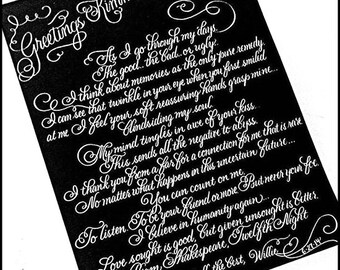 Greetings Kimm
As I go through my days.
The good, the bad, or ugly.
I think about memories as the only pure remedy.
I can see that twinkle in your eye when you first smiled
at me I feel your soft reassuring hands grasp mine...
Blindsiding my soul.
My mind tingles in awe of your kiss.
This sends all the negative to abyss.
I thank you from a far for a connection for me that is rare.
No matter what happens in this uncertain future...
You can count on me.
To listen. To be your friend or nose. But never your foe.
I believe in humanity again.
Love sought is good, but given unsought is better.
From, Shakespeare, Twelfth Night
all the best, Willie